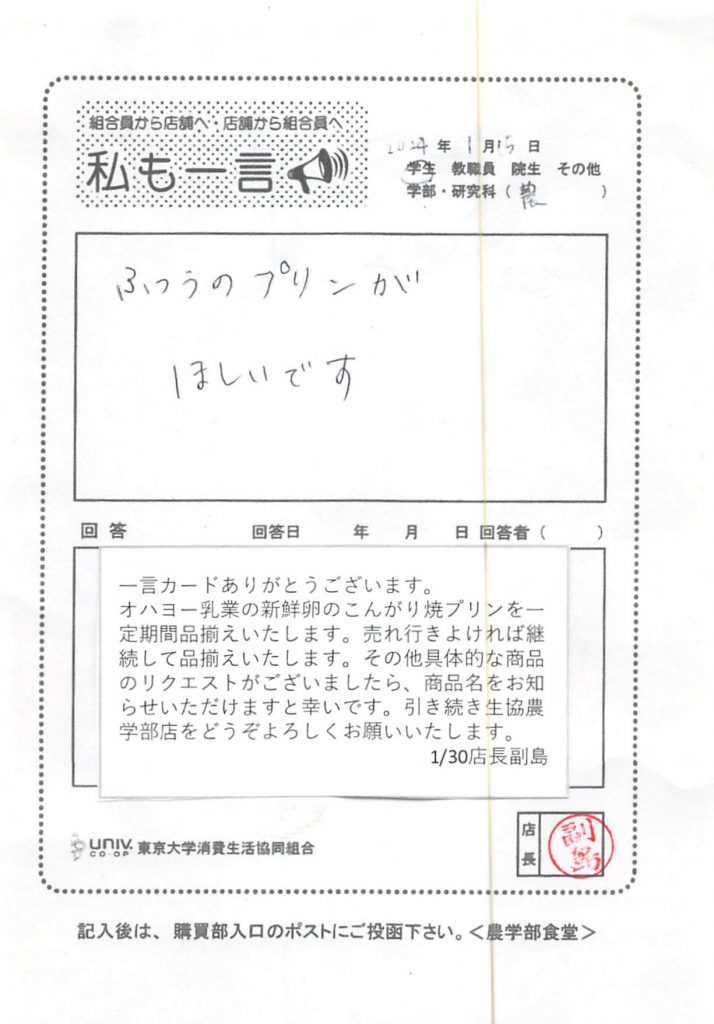 組合員から店舗へ・店舗から組合員へ
私も一言
2024年 1月15日
学生 教職員 院生 その他
学部・研究科（ 農 ）
ふつうのプリンが
ほしいです
回答 回答日 年 月 日 回答者（ ）
一言カードありがとうございます。
オハヨー乳業の新鮮卵のこんがり焼プリンを一
定期間品揃えいたします。売れ行きよければ継
続して品揃えいたします。その他具体的な商品
のリクエストがございましたら、商品名をお知
らせいただけますと幸いです。引き続き生協農
学部店をどうぞよろしくお願いいたします。
1/30店長副島
店長
副島
UNIV. CO-OP 東京大学消費生活協同組合
記入後は、購買部入口のポストにご投函下さい。＜農学部食堂＞